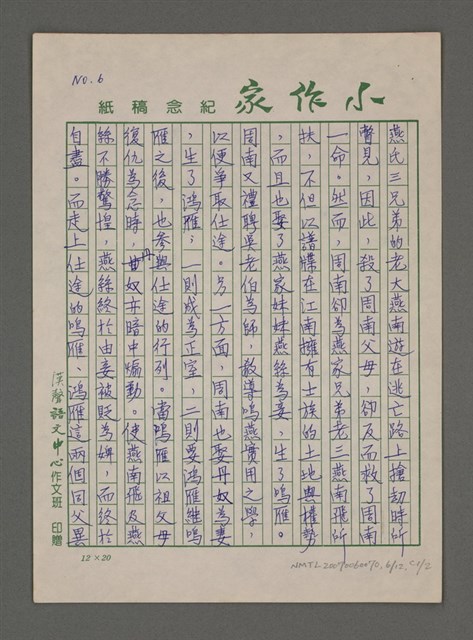 No. 6
小作家
紀念稿紙
燕氏三兄弟的老大燕南遊在逃亡路上搶劫時所
瞥見,因此,殺了周南父母,卻反而救了周南
一命。然而,周南卻為燕家兄弟老三燕南飛所
扶,不但以譜牒在江南擁有士族的土地與權勢
,而且也娶了燕家妹妹燕絲為妻,生了鳴雁。
周南又禮聘吳老伯為師,教導鳴燕實用之學,
以便爭取仕途。另一方面,周南也娶丹奴為妻
,生了鴻雁;一則成為正室,二則要鴻雁繼鳴
雁之後,也參與仕途的行列。當鳴雁以祖父母
復仇為念時,丹奴亦暗中煽動。使燕南飛及燕
絲不勝驚惶,燕絲終於由妻被貶為婢,而終於
自盡。而走上仕途的鳴雁、鴻雁這兩個同父異
漢聲語文中心作文班 印贈
12×20
NMTL20070060070, 6/12, C1/2